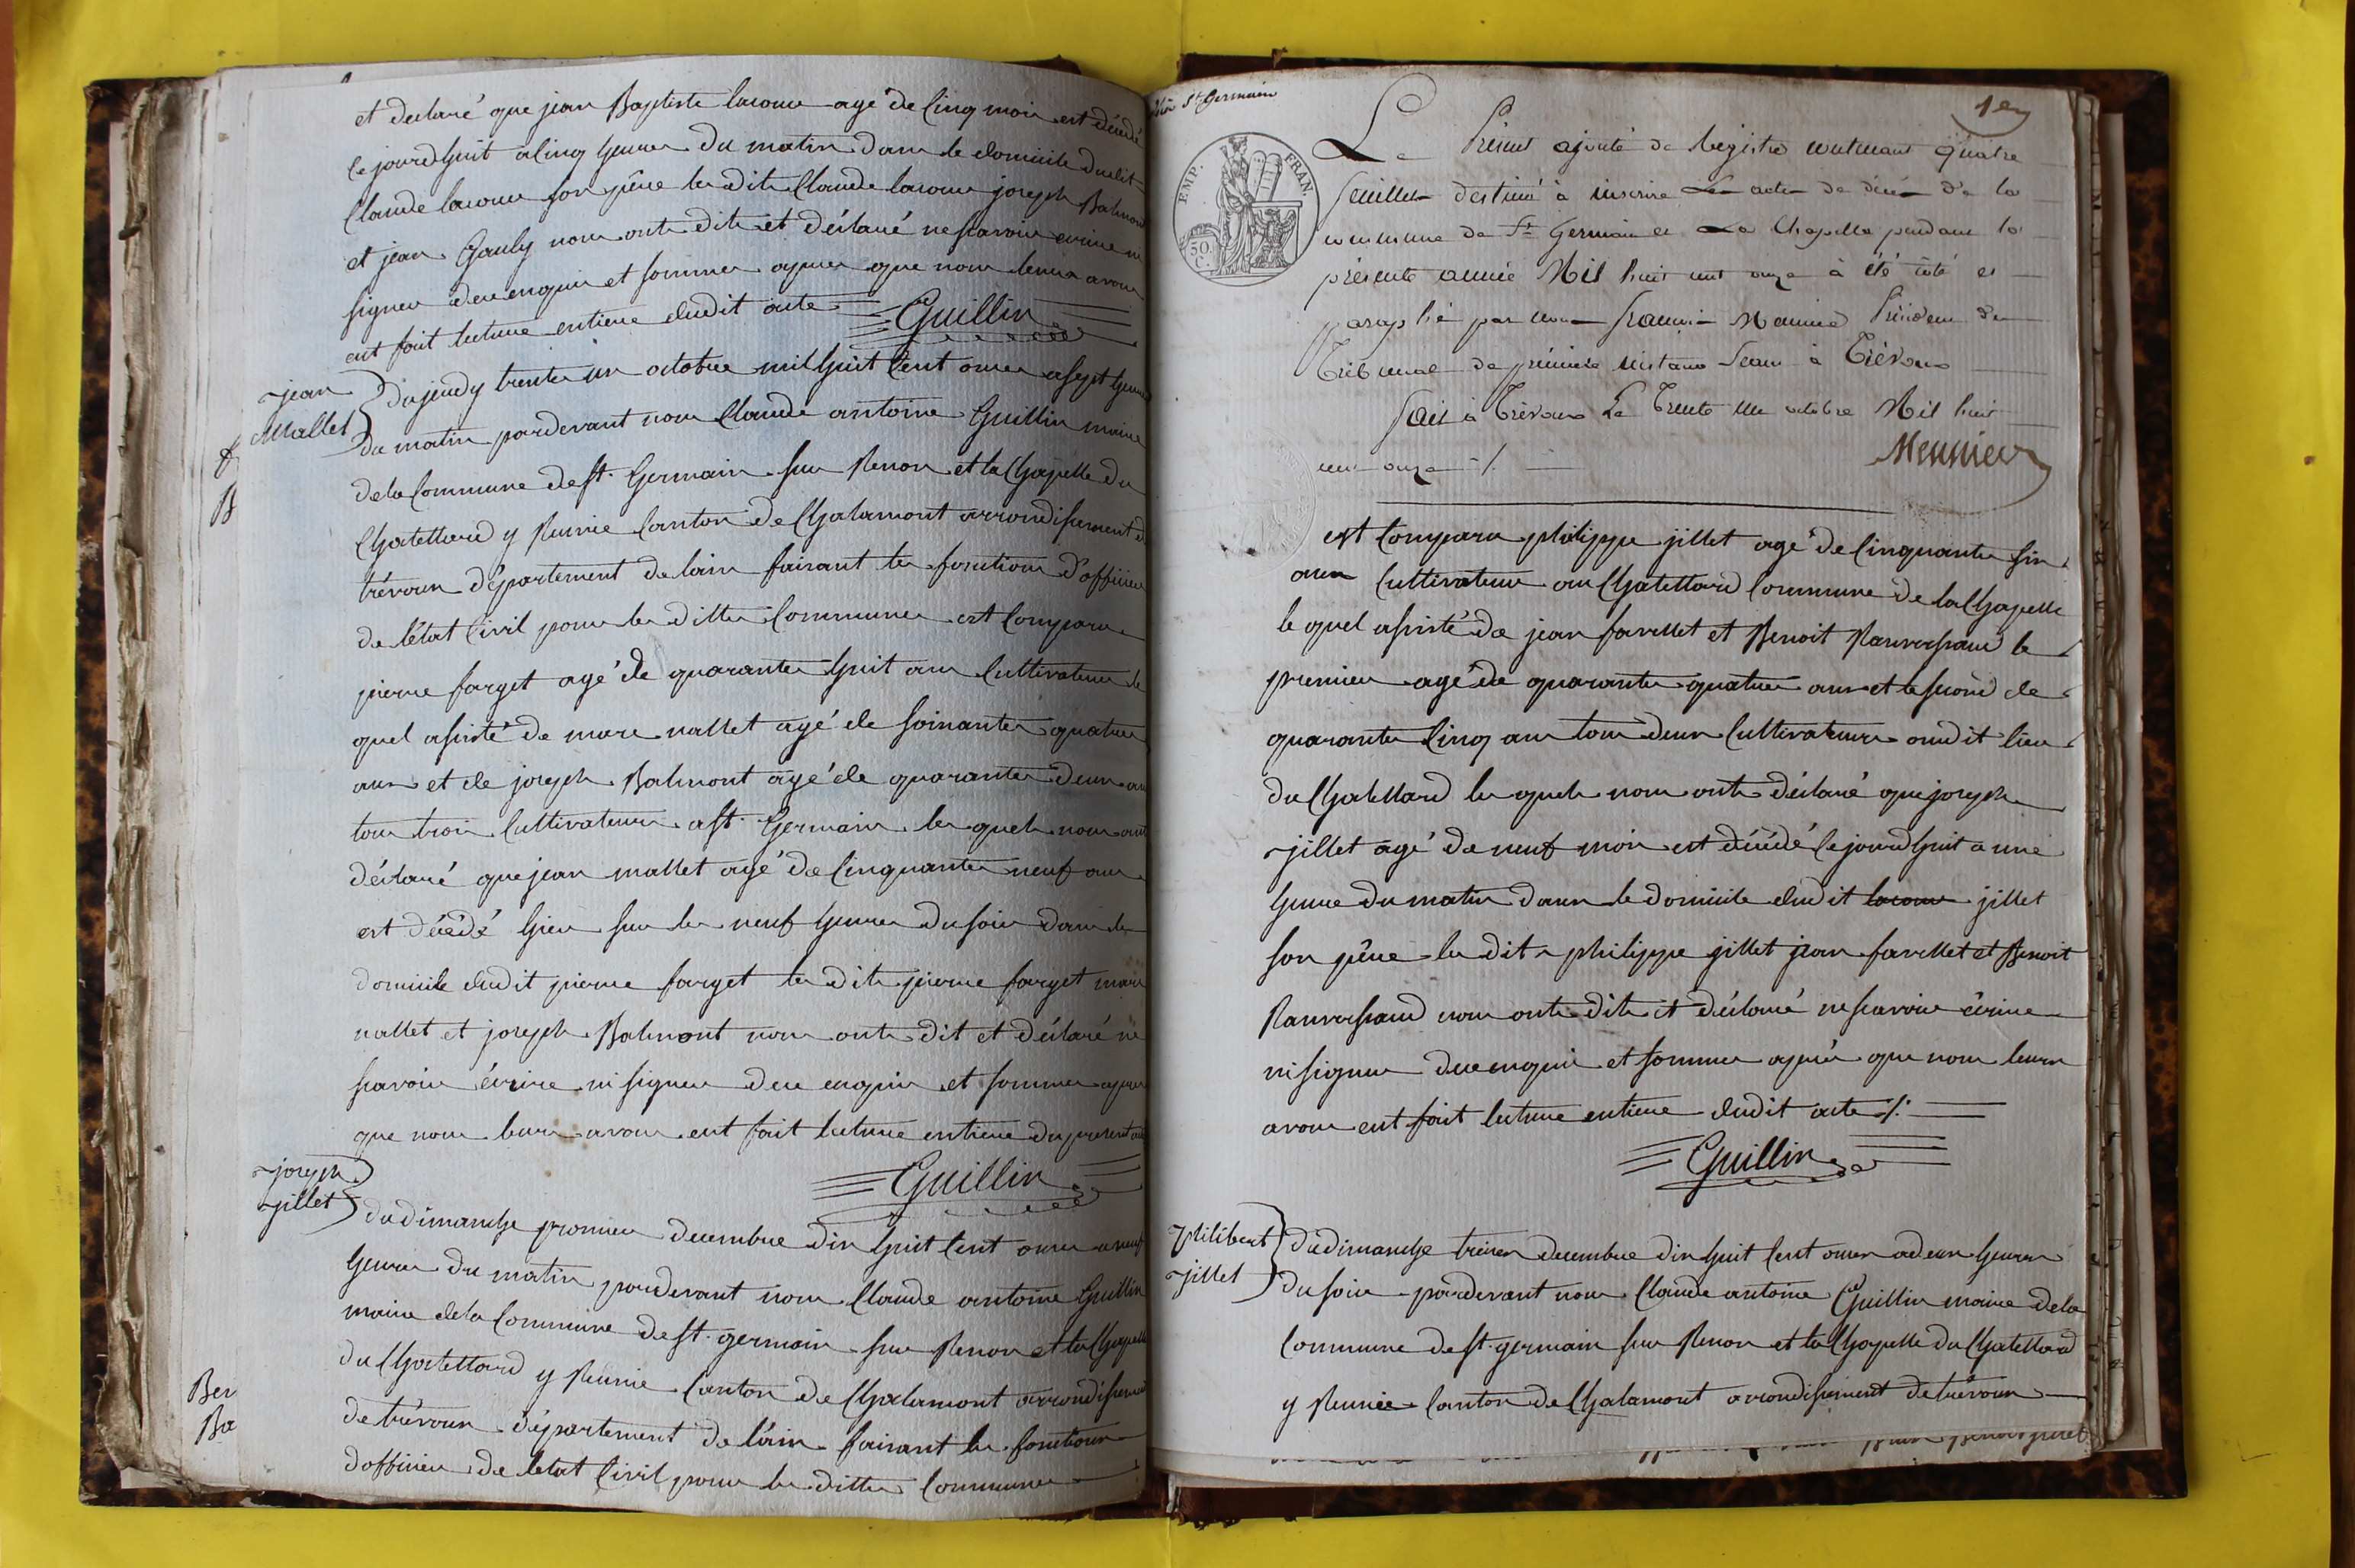 et declaré que jean Baptiste lacour agé de cinq mois est décédé
cejourdhuit a cinq heures du matin dans le domicile dudit
Claude lacour son père les dits Claude lacour joseph Balmont
et jean Gauly nous onts dits et déclaré ne scavoir ecrire ni
signer de ce enquis et sommes apres que nous leurs avons
eut fait lecture entiere dudit acte
Guillin
jean
mallet
du jeudy trente un octobre mil huit cent onze a sept heures
du matin pardevant nous Claude antoine Guillin maire
de la Commune de st. Germain sur Renon et la Chapelle du
Chatellard y Reunie Canton de Chalamont arrondisement de
trévoux département de lain faisant les fonctions d'officier
de l'état Civil pour les dittes Communes est Comparu
pierre farget agé de quarante huit ans Cultivateur le
quel asisté de marc mallet agé de soixante quatre
ans et de joseph Balmont agé de quarante deux ans
tous trois Cultivateurs a st. Germain les quels nous ont
déclaré que jean mallet agé de Cinquante neuf ans
est décédé hier sur les neuf heures du soir dans le
domicile dudit pierre farget les dits pierre farget marc
mallet et joseph Balmont nous onts dit et déclaré ne
scavoir écrire ni signer de ce enquis et sommes apres
que nous leurs avons eut fait lecture entiere du present acte
Guillin
joseph
jillet
du dimanche premier decembre dix huit Cent onze a neuf
heures du matin pardevant nous Claude antoine Guillin
maire de la Commune de st. germain sur Renon et la Chapelle
du Chatellard y Reunie Canton de Chalamont arrondisement
de trévoux département de l'ain faisant les fonctions
d'officier de letat Civil pour les dittes Communes
Ber
Ba
St Germain
1er
EMP. FRAN.
50 C.
Le Présent ajouté de Registre contenant quatre
feuillets destiné à inscrire Les actes de décès de la
commune de St Germain et La Chapelle pendant la
présente année Mil huit cent onze à été coté et
paraphé par nous françois Meunier Président du
Tribunal de première instance séant à Trévoux
fait à Trévoux Le Trente un octobre Mil huit
cent onze ./.
Meunier
est Comparu philippe jillet agé de Cinquante six
ans Cultivateur au Chatellard Commune de la Chapelle
le quel asisté de jean favellet et Benoit le
premier agé de quarante quatre ans et le second de
quarante Cinq ans tous deux Cultivateurs audit lieu
du Chatellard les quels nous onts déclaré que joseph
jillet agé de neuf mois est décédé cejourdhuit a une
heure du matin dans le domicile dudit lacour jillet
son père les dits philippe jillet jean favellet et Benoit
nous onts dits et déclaré ne scavoir écrire
ni signer de ce enquis et sommes après que nous leurs
avons eut fait lecture entiere dudit acte ./.
Guillin
philibert
jillet
du dimanche treize decembre dix huit Cent onze a deux heures
du soir pardevant nous Claude antoine Guillin maire de la
Commune de st. germain sur Renon et la Chapelle du Chatellard
y Reunie Canton de Chalamont arrondisement de trévoux